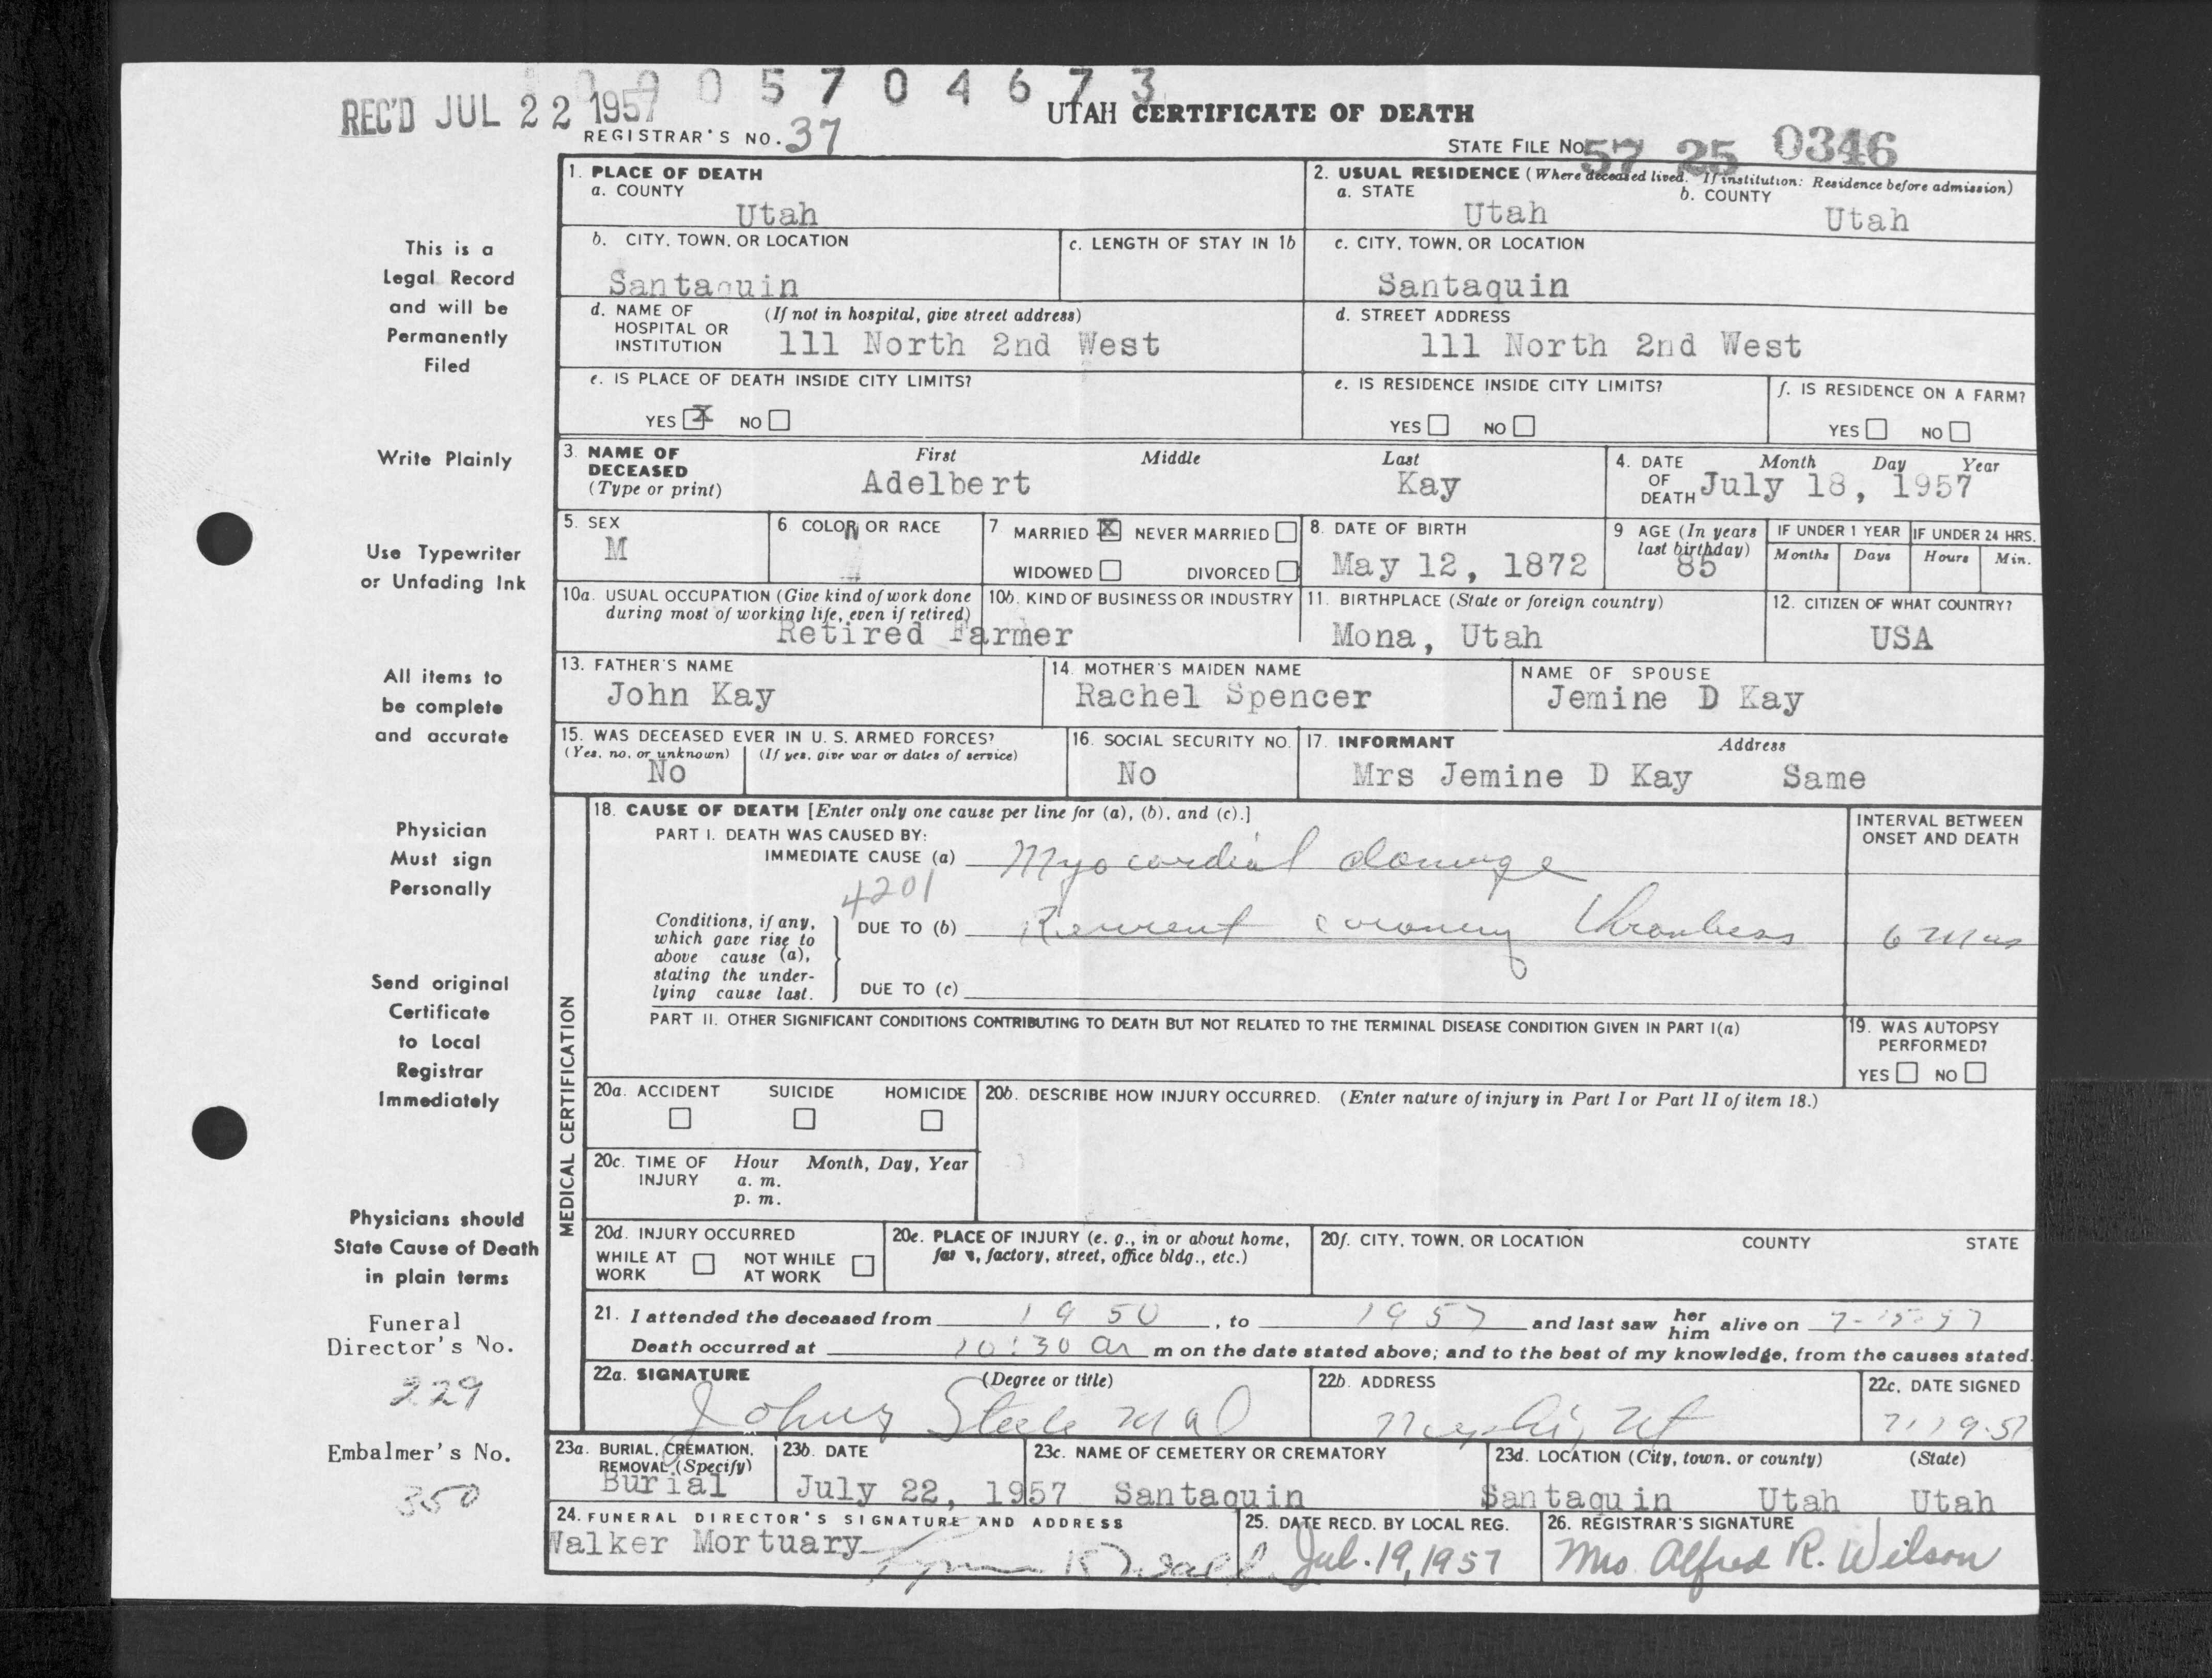 1 0 0 0 5 7 0 4 6 7 3
REC'D JUL 22 1957
UTAH CERTIFICATE OF DEATH
REGISTRAR'S NO. 37
STATE FILE NO. 57 25 0346
1. PLACE OF DEATH
a. COUNTY
Utah
2. USUAL RESIDENCE (Where deceased lived. If institution: Residence before admission)
a. STATE
Utah
b. COUNTY
Utah
b. CITY, TOWN, OR LOCATION
Santaquin
c. LENGTH OF STAY IN 1b
c. CITY, TOWN, OR LOCATION
Santaquin
d. NAME OF HOSPITAL OR INSTITUTION (If not in hospital, give street address)
111 North 2nd West
d. STREET ADDRESS
111 North 2nd West
e. IS PLACE OF DEATH INSIDE CITY LIMITS?
YES X NO
e. IS RESIDENCE INSIDE CITY LIMITS?
YES NO
f. IS RESIDENCE ON A FARM?
YES NO
3. NAME OF DECEASED (Type or print)
First Middle Last
Adelbert Kay
4. DATE OF DEATH Month Day Year
July 18, 1957
5. SEX
M
6. COLOR OR RACE
W
7 MARRIED X NEVER MARRIED
WIDOWED DIVORCED
8. DATE OF BIRTH
May 12, 1872
9 AGE (In years last birthday)
85
IF UNDER 1 YEAR
Months Days
IF UNDER 24 HRS.
Hours Min.
10a. USUAL OCCUPATION (Give kind of work done during most of working life, even if retired)
Retired Farmer
10b. KIND OF BUSINESS OR INDUSTRY
11. BIRTHPLACE (State or foreign country)
Mona, Utah
12. CITIZEN OF WHAT COUNTRY?
USA
13. FATHER'S NAME
John Kay
14. MOTHER'S MAIDEN NAME
Rachel Spencer
NAME OF SPOUSE
Jemine D Kay
15. WAS DECEASED EVER IN U. S. ARMED FORCES?
(Yes, no, or unknown) (If yes, give war or dates of service)
No
16. SOCIAL SECURITY NO.
No
17. INFORMANT Address
Mrs Jemine D Kay Same
MEDICAL CERTIFICATION
18. CAUSE OF DEATH [Enter only one cause per line for (a), (b), and (c).]
PART I. DEATH WAS CAUSED BY:
IMMEDIATE CAUSE (a) Myocardial damage
INTERVAL BETWEEN ONSET AND DEATH
4201
Conditions, if any, which gave rise to above cause (a), stating the underlying cause last.
DUE TO (b) Recurrent coronary thrombosis 6 mos
DUE TO (c)
PART II. OTHER SIGNIFICANT CONDITIONS CONTRIBUTING TO DEATH BUT NOT RELATED TO THE TERMINAL DISEASE CONDITION GIVEN IN PART I(a)
19. WAS AUTOPSY PERFORMED?
YES NO
20a. ACCIDENT SUICIDE HOMICIDE
20b. DESCRIBE HOW INJURY OCCURRED. (Enter nature of injury in Part I or Part II of item 18.)
20c. TIME OF INJURY Hour Month, Day, Year
a. m.
p. m.
20d. INJURY OCCURRED
WHILE AT WORK NOT WHILE AT WORK
20e. PLACE OF INJURY (e. g., in or about home, farm, factory, street, office bldg., etc.)
20f. CITY, TOWN, OR LOCATION COUNTY STATE
21. I attended the deceased from 1950, to 1957 and last saw her him alive on 7-15-57
Death occurred at 10:30 a m on the date stated above; and to the best of my knowledge, from the causes stated.
22a. SIGNATURE (Degree or title)
Steele MD
22b. ADDRESS
Nephi, Ut
22c. DATE SIGNED
7-19-57
23a. BURIAL, CREMATION, REMOVAL (Specify)
Burial
23b. DATE
July 22, 1957
23c. NAME OF CEMETERY OR CREMATORY
Santaquin
23d. LOCATION (City, town, or county) (State)
Santaquin Utah Utah
24. FUNERAL DIRECTOR'S SIGNATURE AND ADDRESS
Walker Mortuary
25. DATE RECD. BY LOCAL REG.
Jul. 19, 1957
26. REGISTRAR'S SIGNATURE
Mrs. Alfred R. Wilson
This is a
Legal Record
and will be
Permanently
Filed
Write Plainly
Use Typewriter
or Unfading Ink
All items to
be complete
and accurate
Physician
Must sign
Personally
Send original
Certificate
to Local
Registrar
Immediately
Physicians should
State Cause of Death
in plain terms
Funeral
Director's No.
229
Embalmer's No.
350